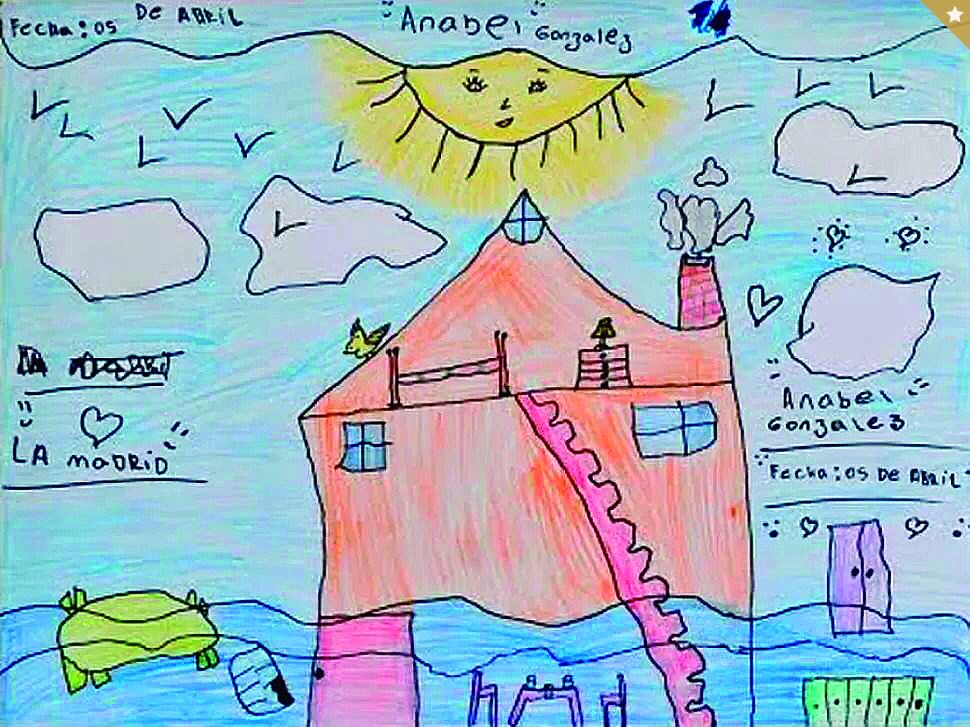 Fecha: 05 DE ABRIL
"Anabel" Gonzalez
LA MADRID
Anabel
Gonzalez
Fecha: 05 DE ABRIL